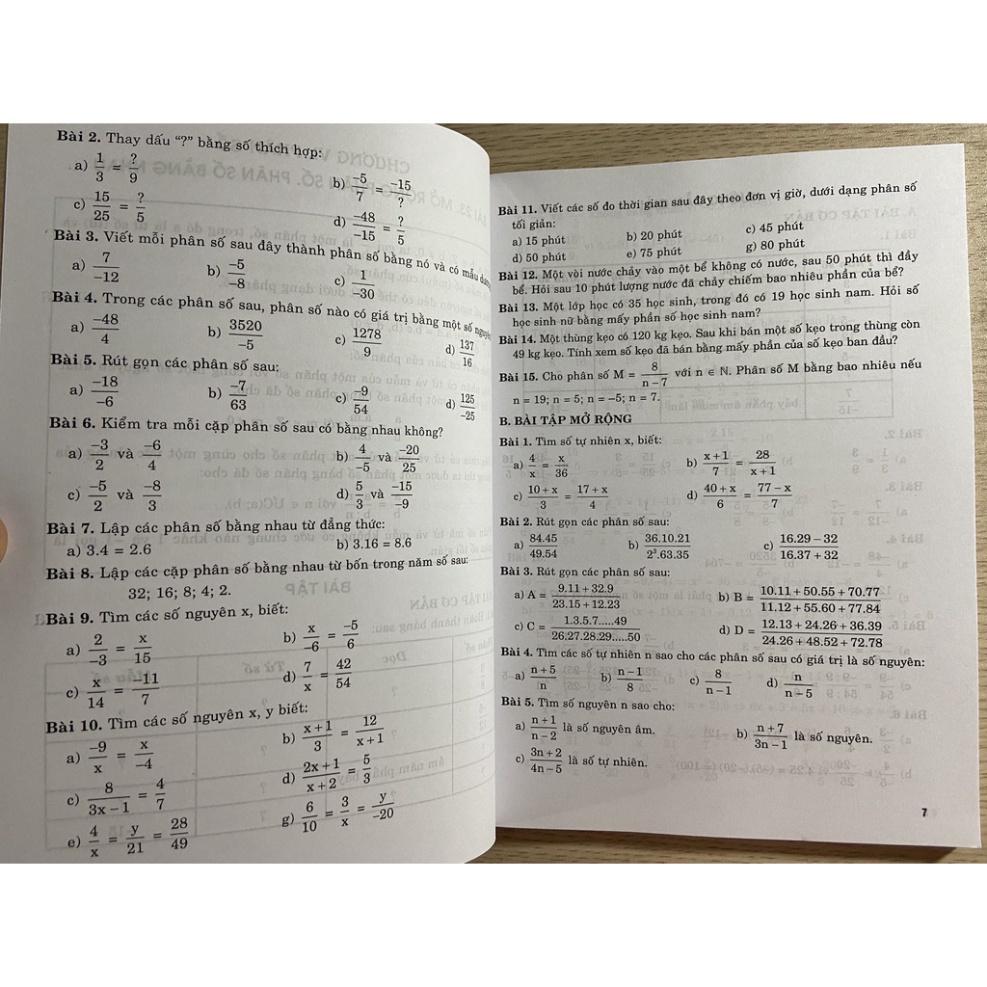 Bài 2. Thay dấu "?" bằng số thích hợp:
a) 1/3 = ?/9
b) -5/7 = -15/?
c) 15/25 = ?/5
d) -48/-15 = ?/5
Bài 3. Viết mỗi phân số sau đây thành phân số bằng nó và có mẫu dương
a) 7/-12
b) -5/-8
c) 1/-30
Bài 4. Trong các phân số sau, phân số nào có giá trị bằng một số nguyên
a) -48/4
b) 3520/-5
c) 1278/9
d) 137/16
Bài 5. Rút gọn các phân số sau:
a) -18/-6
b) -7/63
c) -9/54
d) 125/-25
Bài 6. Kiểm tra mỗi cặp phân số sau có bằng nhau không?
a) -3/2 và -6/4
b) 4/-5 và -20/25
c) -5/2 và -8/3
d) 5/3 và -15/-9
Bài 7. Lập các phân số bằng nhau từ đẳng thức:
a) 3.4 = 2.6
b) 3.16 = 8.6
Bài 8. Lập các cặp phân số bằng nhau từ bốn trong năm số sau:
32; 16; 8; 4; 2.
Bài 9. Tìm các số nguyên x, biết:
a) 2/-3 = x/15
b) x/-6 = -5/6
c) x/14 = -11/7
d) 7/x = 42/54
Bài 10. Tìm các số nguyên x, y biết:
a) -9/x = x/-4
b) x+1/3 = 12/x+1
c) 8/3x-1 = 4/7
d) 2x+1/x+2 = 5/3
e) 4/x = y/21 = 28/49
g) 6/10 = 3/x = y/-20
Bài 11. Viết các số đo thời gian sau đây theo đơn vị giờ, dưới dạng phân số
tối giản:
a) 15 phút b) 20 phút c) 45 phút
d) 50 phút e) 75 phút g) 80 phút
Bài 12. Một vòi nước chảy vào một bể không có nước, sau 50 phút thì đầy
bể. Hỏi sau 10 phút lượng nước đã chảy chiếm bao nhiêu phần của bể?
Bài 13. Một lớp học có 35 học sinh, trong đó có 19 học sinh nam. Hỏi số
học sinh nữ bằng mấy phần số học sinh nam?
Bài 14. Một thùng kẹo có 120 kg kẹo. Sau khi bán một số kẹo trong thùng còn
49 kg kẹo. Tính xem số kẹo đã bán bằng mấy phần của số kẹo ban đầu?
Bài 15. Cho phân số M = 8/n-7 với n ∈ ℕ. Phân số M bằng bao nhiêu nếu
n = 19; n = 5; n = -5; n = 7.
B. BÀI TẬP MỞ RỘNG
Bài 1. Tìm số tự nhiên x, biết:
a) 4/x = x/36
b) x+1/7 = 28/x+1
c) 10+x/3 = 17+x/4
d) 40+x/6 = 77-x/7
Bài 2. Rút gọn các phân số sau:
a) 84.45/49.54
b) 36.10.21/2³.63.35
c) 16.29-32/16.37+32
Bài 3. Rút gọn các phân số sau:
a) A = 9.11+32.9/23.15+12.23
b) B = 10.11+50.55+70.77/11.12+55.60+77.84
c) C = 1.3.5.7.....49/26.27.28.29.....50
d) D = 12.13+24.26+36.39/24.26+48.52+72.78
Bài 4. Tìm các số tự nhiên n sao cho các phân số sau có giá trị là số nguyên:
a) n+5/n
b) n-1/8
c) 8/n-1
d) n/n-5
Bài 5. Tìm số nguyên n sao cho:
a) n+1/n-2 là số nguyên âm.
b) n+7/3n-1 là số nguyên.
c) 3n+2/4n-5 là số tự nhiên.
7